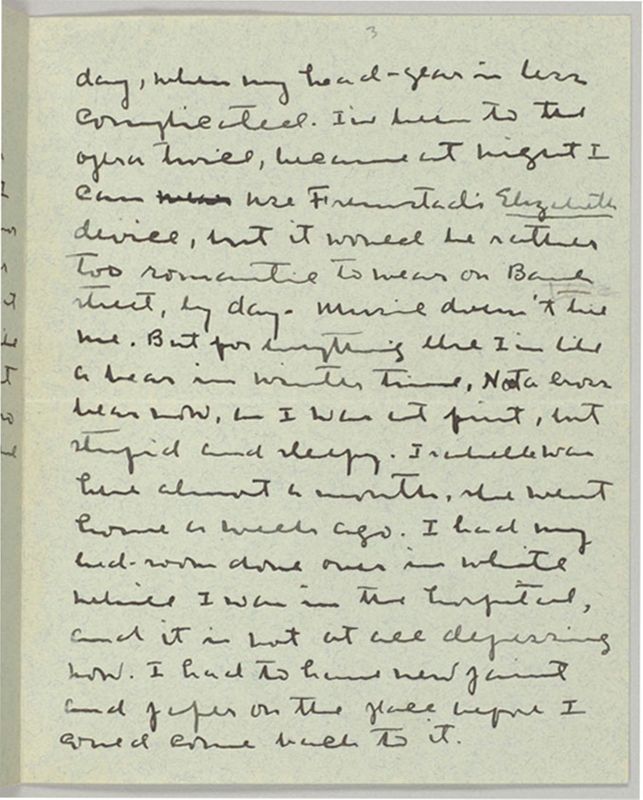 3
day, when my head-gear is less
complicated. I've been to the
opera twice, because at night I
can wear use Fremstad's Elizabeth
device, but it would be rather
too romantic to wear on Bank
street, by day. Music doesn't tire
me. But for everything else I'm like
a bear in winter time, Not a cross
bear now, as I was at first, but
stupid and sleepy. Isabelle was
here almost a month, she went
home a week ago. I had my
bed-room done over in white
while I was in the hospital,
and it is not at all depressing
now. I had to have new paint
and paper on the place before I
could come back to it.